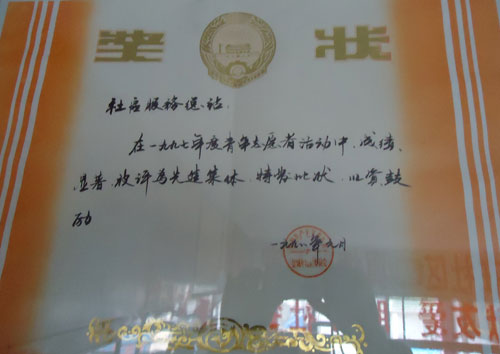 奖 状
社区服务总站:
在一九九七年度青年志愿者活动中,成绩
显著,被评为先进集体,特发此状,以资鼓
励
一九九八年元月
社区